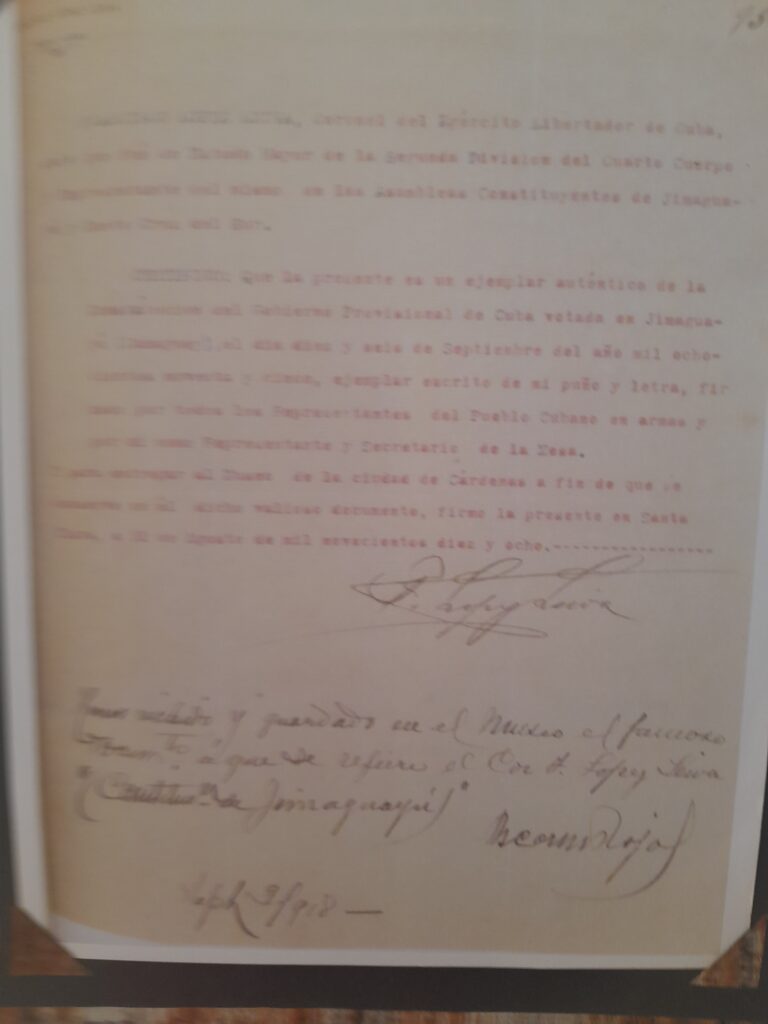 75
FRANCISCO LOPEZ LEIVA, Coronel del Ejército Libertador de Cuba,
de Estado Mayor de la Segunda Division del Cuarto Cuerpo
y Representante del mismo en las Asambleas Constituyentes de Jimagua-
y Santa Cruz del Sur.
CERTIFICO: Que la presente es un ejemplar auténtico de la
Constitucion del Gobierno Provisional de Cuba votada en Jimagua-
el dia diez y seis de Septiembre del año mil ocho-
cientos noventa y cinco, ejemplar escrito de mi puño y letra, fir
mado por todos los Representantes del Pueblo Cubano en armas y
por mi como Representante y Secretario de la Mesa.
Y para entregar al Museo de la ciudad de Cárdenas a fin de que se
conserve en él dicho valioso documento, firmo la presente en Santa
Clara, a de Agosto de mil novecientos diez y ocho.-----------------
F. Lopez Leiva
y guardado en el Museo el famoso
a que se refiere el Cor F. Lopez Leiva
de Jimaguayú)"
Rojas
Sept 9/918 —